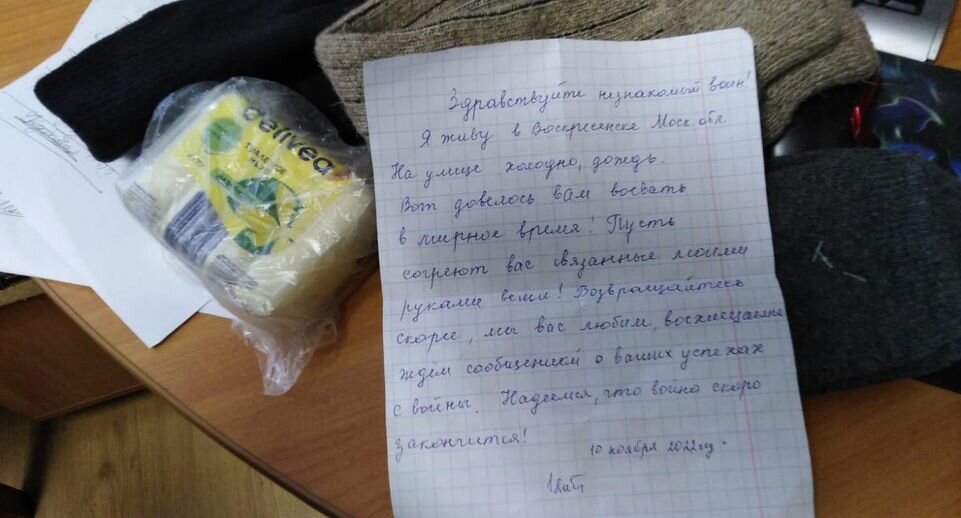 delikea
ТУАЛЕ
МЫЛО
Здравствуйте незнакомый воин!
Я живу в Воскресенске Моск обл.
На улице холодно, дождь.
Вот довелось вам воевать
в мирное время! Пусть
согреют вас связанные моими
руками вещи! Возвращайтесь
скорее, мы вас любим, восхищаемся
ждём сообщений о ваших успехах
с войны. Надеемся, что война скоро
закончится!
10 ноября 2022год.